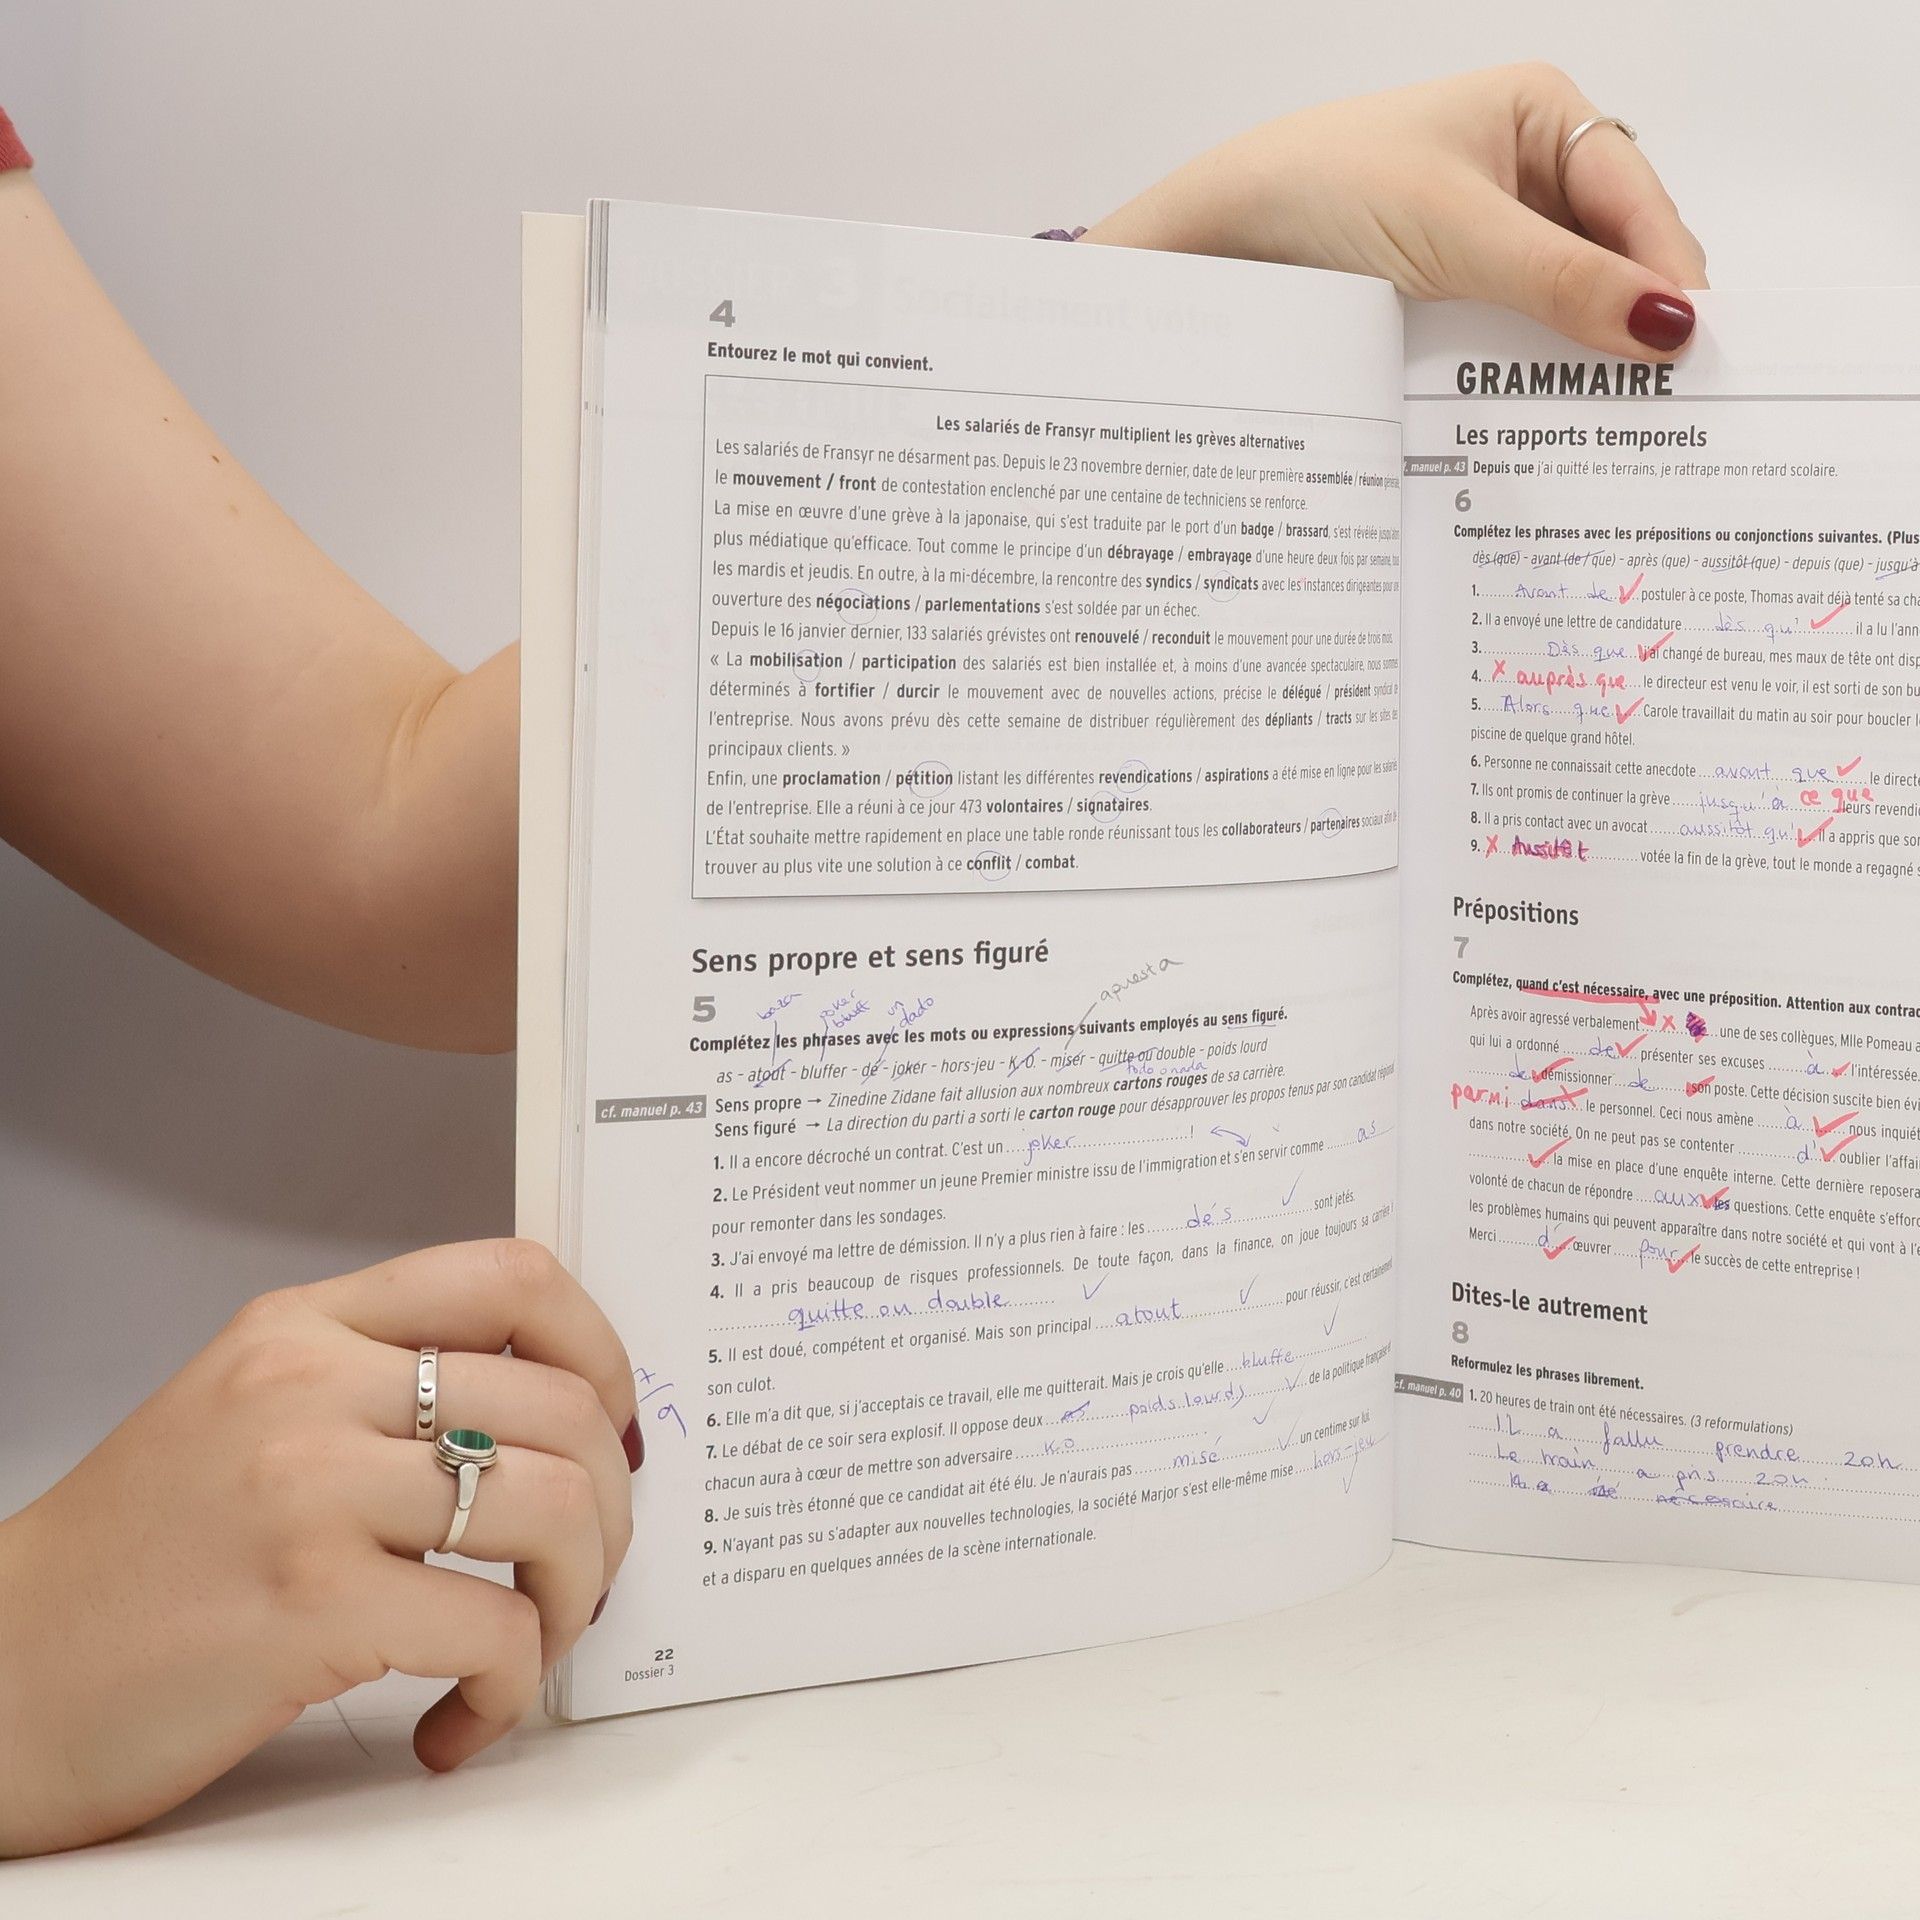 4
Entourez le mot qui convient.
Les salariés de Fransyr multiplient les grèves alternatives
Les salariés de Fransyr ne désarment pas. Depuis le 23 novembre dernier, date de leur première assemblée / réunion générale,
le mouvement / front de contestation enclenché par une centaine de techniciens se renforce.
La mise en œuvre d'une grève à la japonaise, qui s'est traduite par le port d'un badge / brassard, s'est révélée
plus médiatique qu'efficace. Tout comme le principe d'un débrayage / embrayage d'une heure deux fois par semaine,
les mardis et jeudis. En outre, à la mi-décembre, la rencontre des syndics / syndicats avec les instances dirigeantes
ouverture des négociations / parlementations s'est soldée par un échec.
Depuis le 16 janvier dernier, 133 salariés grévistes ont renouvelé / reconduit le mouvement pour une durée de trois mois.
« La mobilisation / participation des salariés est bien installée et, à moins d'une avancée spectaculaire, nous sommes
déterminés à fortifier / durcir le mouvement avec de nouvelles actions, précise le délégué / président syndical de
l'entreprise. Nous avons prévu dès cette semaine de distribuer régulièrement des dépliants / tracts sur les sites des
principaux clients. »
Enfin, une proclamation / pétition listant les différentes revendications / aspirations a été mise en ligne pour les salariés
de l'entreprise. Elle a réuni à ce jour 473 volontaires / signataires.
L'État souhaite mettre rapidement en place une table ronde réunissant tous les collaborateurs / partenaires sociaux afin de
trouver au plus vite une solution à ce conflit / combat.
Sens propre et sens figuré
5
baza joker un dado apuesta
Complétez les phrases avec les mots ou expressions suivants employés au sens figuré.
as - atout - bluffer - dé - joker - hors-jeu - K.O. - miser - quitte ou double - poids lourd
todo o nada
cf. manuel p. 43 Sens propre → Zinedine Zidane fait allusion aux nombreux cartons rouges de sa carrière.
Sens figuré → La direction du parti a sorti le carton rouge pour désapprouver les propos tenus par son candidat régional.
1. Il a encore décroché un contrat. C'est un joker !
2. Le Président veut nommer un jeune Premier ministre issu de l'immigration et s'en servir comme as
pour remonter dans les sondages.
3. J'ai envoyé ma lettre de démission. Il n'y a plus rien à faire : les dés sont jetés.
4. Il a pris beaucoup de risques professionnels. De toute façon, dans la finance, on joue toujours sa carrière
quitte ou double
5. Il est doué, compétent et organisé. Mais son principal atout pour réussir, c'est certainement
son culot.
6. Elle m'a dit que, si j'acceptais ce travail, elle me quitterait. Mais je crois qu'elle bluffe
7. Le débat de ce soir sera explosif. Il oppose deux as poids lourds de la politique française et
chacun aura à cœur de mettre son adversaire K.O
8. Je suis très étonné que ce candidat ait été élu. Je n'aurais pas misé un centime sur lui
9. N'ayant pas su s'adapter aux nouvelles technologies, la société Marjor s'est elle-même mise hors-jeu
et a disparu en quelques années de la scène internationale.
7/9
22
Dossier 3
GRAMMAIRE
Les rapports temporels
cf. manuel p. 43 Depuis que j'ai quitté les terrains, je rattrape mon retard scolaire.
6
Complétez les phrases avec les prépositions ou conjonctions suivantes. (Plus
dès (que) - avant (de / que) - après (que) - aussitôt (que) - depuis (que) - jusqu'à
1. Avant de postuler à ce poste, Thomas avait déjà tenté sa
2. Il a envoyé une lettre de candidature dès qu' il a lu l'ann
3. Dès que j'ai changé de bureau, mes maux de tête ont disp
4. auprès que le directeur est venu le voir, il est sorti de son bu
5. Alors que Carole travaillait du matin au soir pour boucler
piscine de quelque grand hôtel.
6. Personne ne connaissait cette anecdote avant que le direct
7. Ils ont promis de continuer la grève jusqu'à ce que leurs revendi
8. Il a pris contact avec un avocat aussitôt qu' il a appris que
9. Aussitôt votée la fin de la grève, tout le monde a regagné
Prépositions
7
Complétez, quand c'est nécessaire, avec une préposition. Attention aux contrac
Après avoir agressé verbalement une de ses collègues, Mlle Pomeau
qui lui a ordonné de présenter ses excuses à l'intéressée.
de démissionner de son poste. Cette décision suscite bien
parmi dans le personnel. Ceci nous amène à nous inquiét
dans notre société. On ne peut pas se contenter d' oublier l'affai
la mise en place d'une enquête interne. Cette dernière reposera
volonté de chacun de répondre aux les questions. Cette enquête s'effor
les problèmes humains qui peuvent apparaître dans notre société et qui vont à
Merci d' œuvrer pour le succès de cette entreprise !
Dites-le autrement
8
Reformulez les phrases librement.
cf. manuel p. 40 1. 20 heures de train ont été nécessaires. (3 reformulations)
Il a fallu prendre 20h
Le train a pris 20h
nécessaire